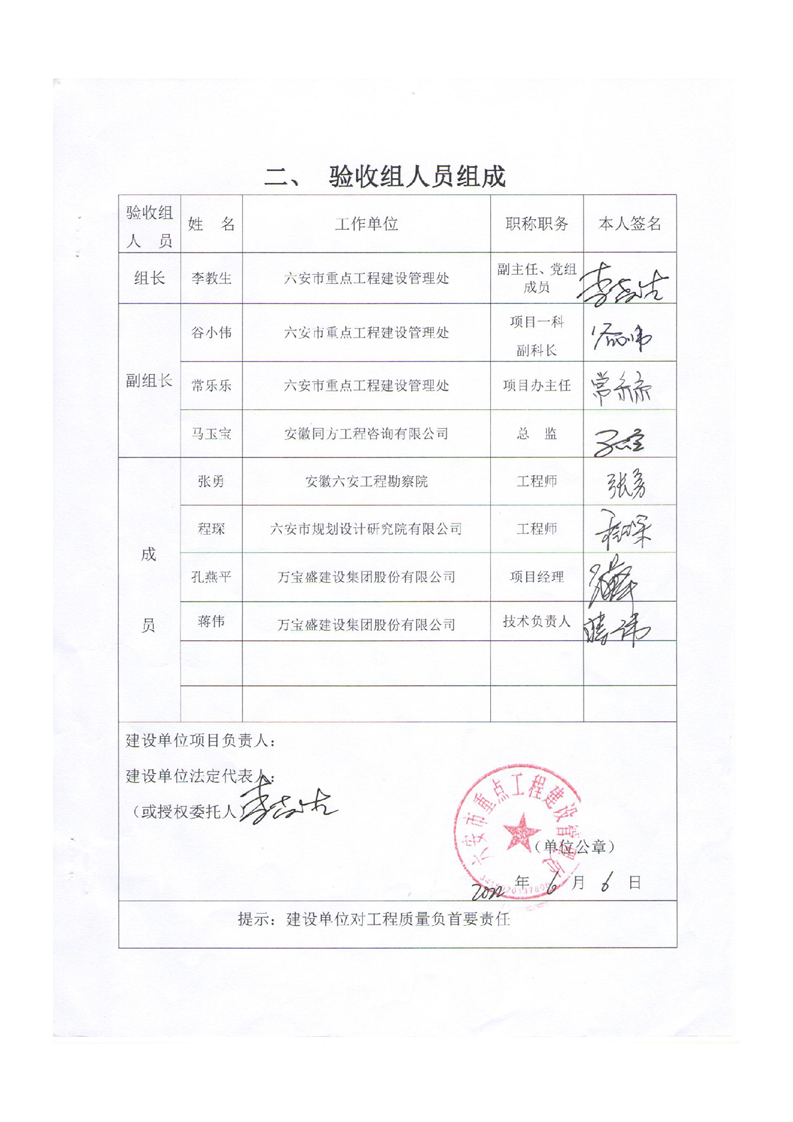 二、 验收组人员组成
验收组人 员 姓 名 工作单位 职称职务 本人签名
组长 李教生 六安市重点工程建设管理处 副主任、党组成员 李教生
副组长 谷小伟 六安市重点工程建设管理处 项目一科副科长 谷小伟
常乐乐 六安市重点工程建设管理处 项目办主任 常乐乐
马玉宝 安徽同方工程咨询有限公司 总 监 马玉宝
成员 张勇 安徽六安工程勘察院 工程师 张勇
程琛 六安市规划设计研究院有限公司 工程师 程琛
孔燕平 万宝盛建设集团股份有限公司 项目经理
蒋伟 万宝盛建设集团股份有限公司 技术负责人 蒋伟
建设单位项目负责人：
建设单位法定代表人：
（或授权委托人） 李教生
六安市重点工程建设管理处
（单位公章）
2022 年 6 月 6 日
提示：建设单位对工程质量负首要责任